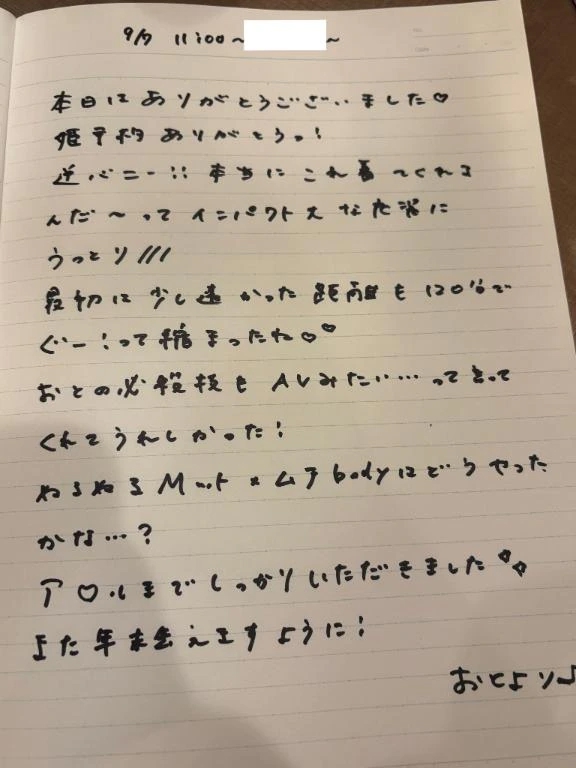 9/7 11:00～ ～
本日はありがとうございました♡
姫予約ありがとうっ!
逆バニー!! 本当にこれ着てくれる
んだ～ってインパクト大な衣装に
うっとり///
最初は少し遠かった距離も120%で
ぐー!って縮まったね♡♡
おとの必殺技もAVみたい…って言って
くれてうれしかった!
ぬるぬるMット×ムチbodyはどうやった
かな…?
ア♡ルまでしっかりいただきました
また年末会えますように!
おとより♪